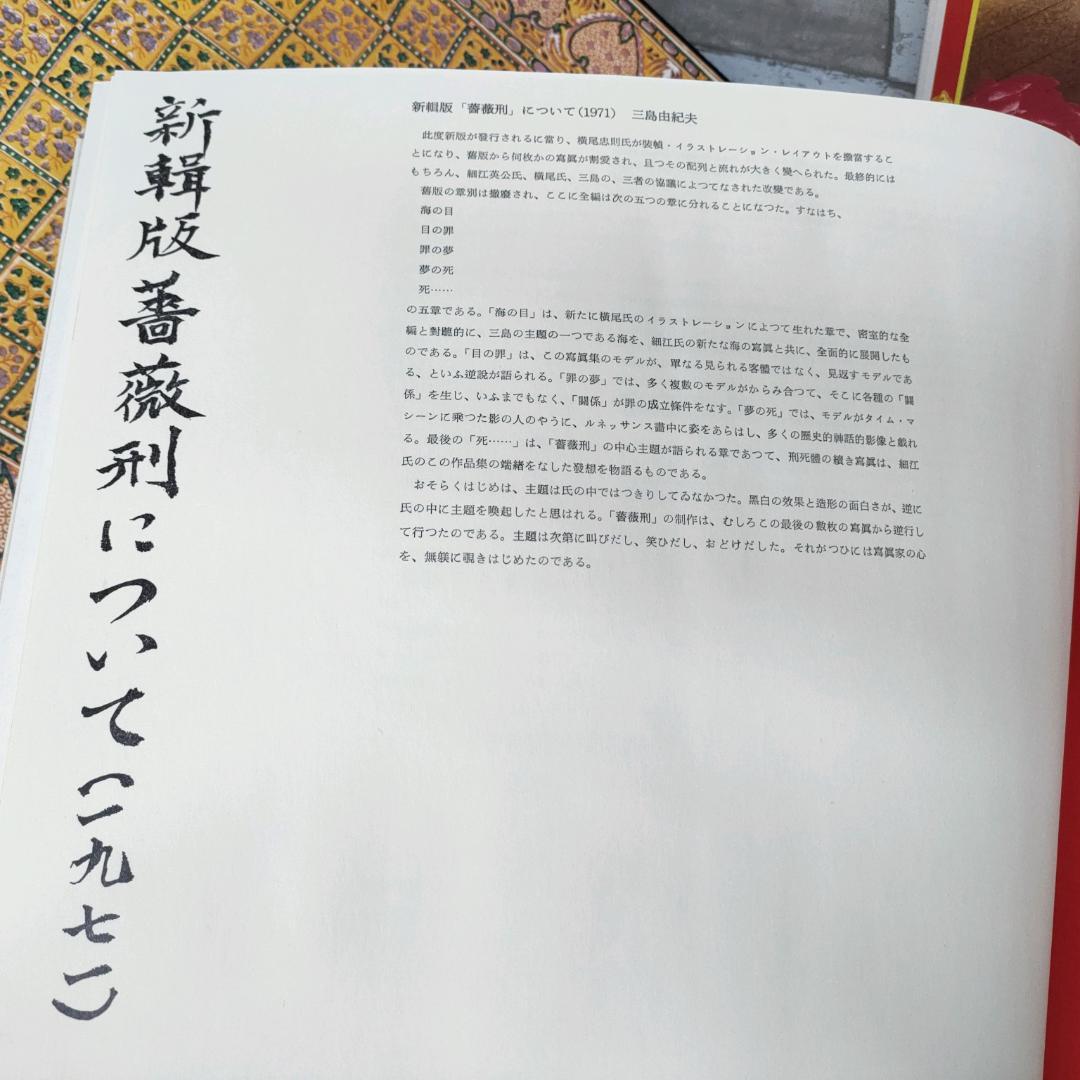 新輯版薔薇刑について(一九七一)
新輯版「薔薇刑」について(1971) 三島由紀夫
此度新版が發行されるに當り、横尾忠則氏が裝幀・イラストレーション・レイアウトを擔當するこ
とになり、舊版から何枚かの寫眞が割愛され、且つその配列と流れが大きく變へられた。最終的には
もちろん、細江英公氏、横尾氏、三島の、三者の協議によつてなされた改變である。
舊版の章別は撤廢され、ここに全編は次の五つの章に分れることになつた。すなはち、
海の目
目の罪
罪の夢
夢の死
死……
の五章である。「海の目」は、新たに横尾氏のイラストレーションによつて生れた章で、密室的な全
編と對蹠的に、三島の主題の一つである海を、細江氏の新たな海の寫眞と共に、全面的に展開したも
のである。「目の罪」は、この寫眞集のモデルが、單なる見られる客體ではなく、見返すモデルであ
る、といふ逆說が語られる。「罪の夢」では、多く複數のモデルがからみ合つて、そこに各種の「關
係」を生じ、いふまでもなく、「關係」が罪の成立條件をなす。「夢の死」では、モデルがタイム・マ
シーンに乘つた影の人のやうに、ルネッサンス畫中に姿をあらはし、多くの歷史的神話的影像と戲れ
る。最後の「死……」は、「薔薇刑」の中心主題が語られる章であつて、刑死體の續き寫眞は、細江
氏のこの作品集の端緒をなした發想を物語るものである。
おそらくはじめは、主題は氏の中ではつきりしてゐなかつた。黑白の效果と造形の面白さが、逆に
氏の中に主題を喚起したと思はれる。「薔薇刑」の制作は、むしろこの最後の數枚の寫眞から逆行し
て行つたのである。主題は次第に叫びだし、笑ひだし、おどけだした。それがつひには寫眞家の心
を、無躾に覗きはじめたのである。